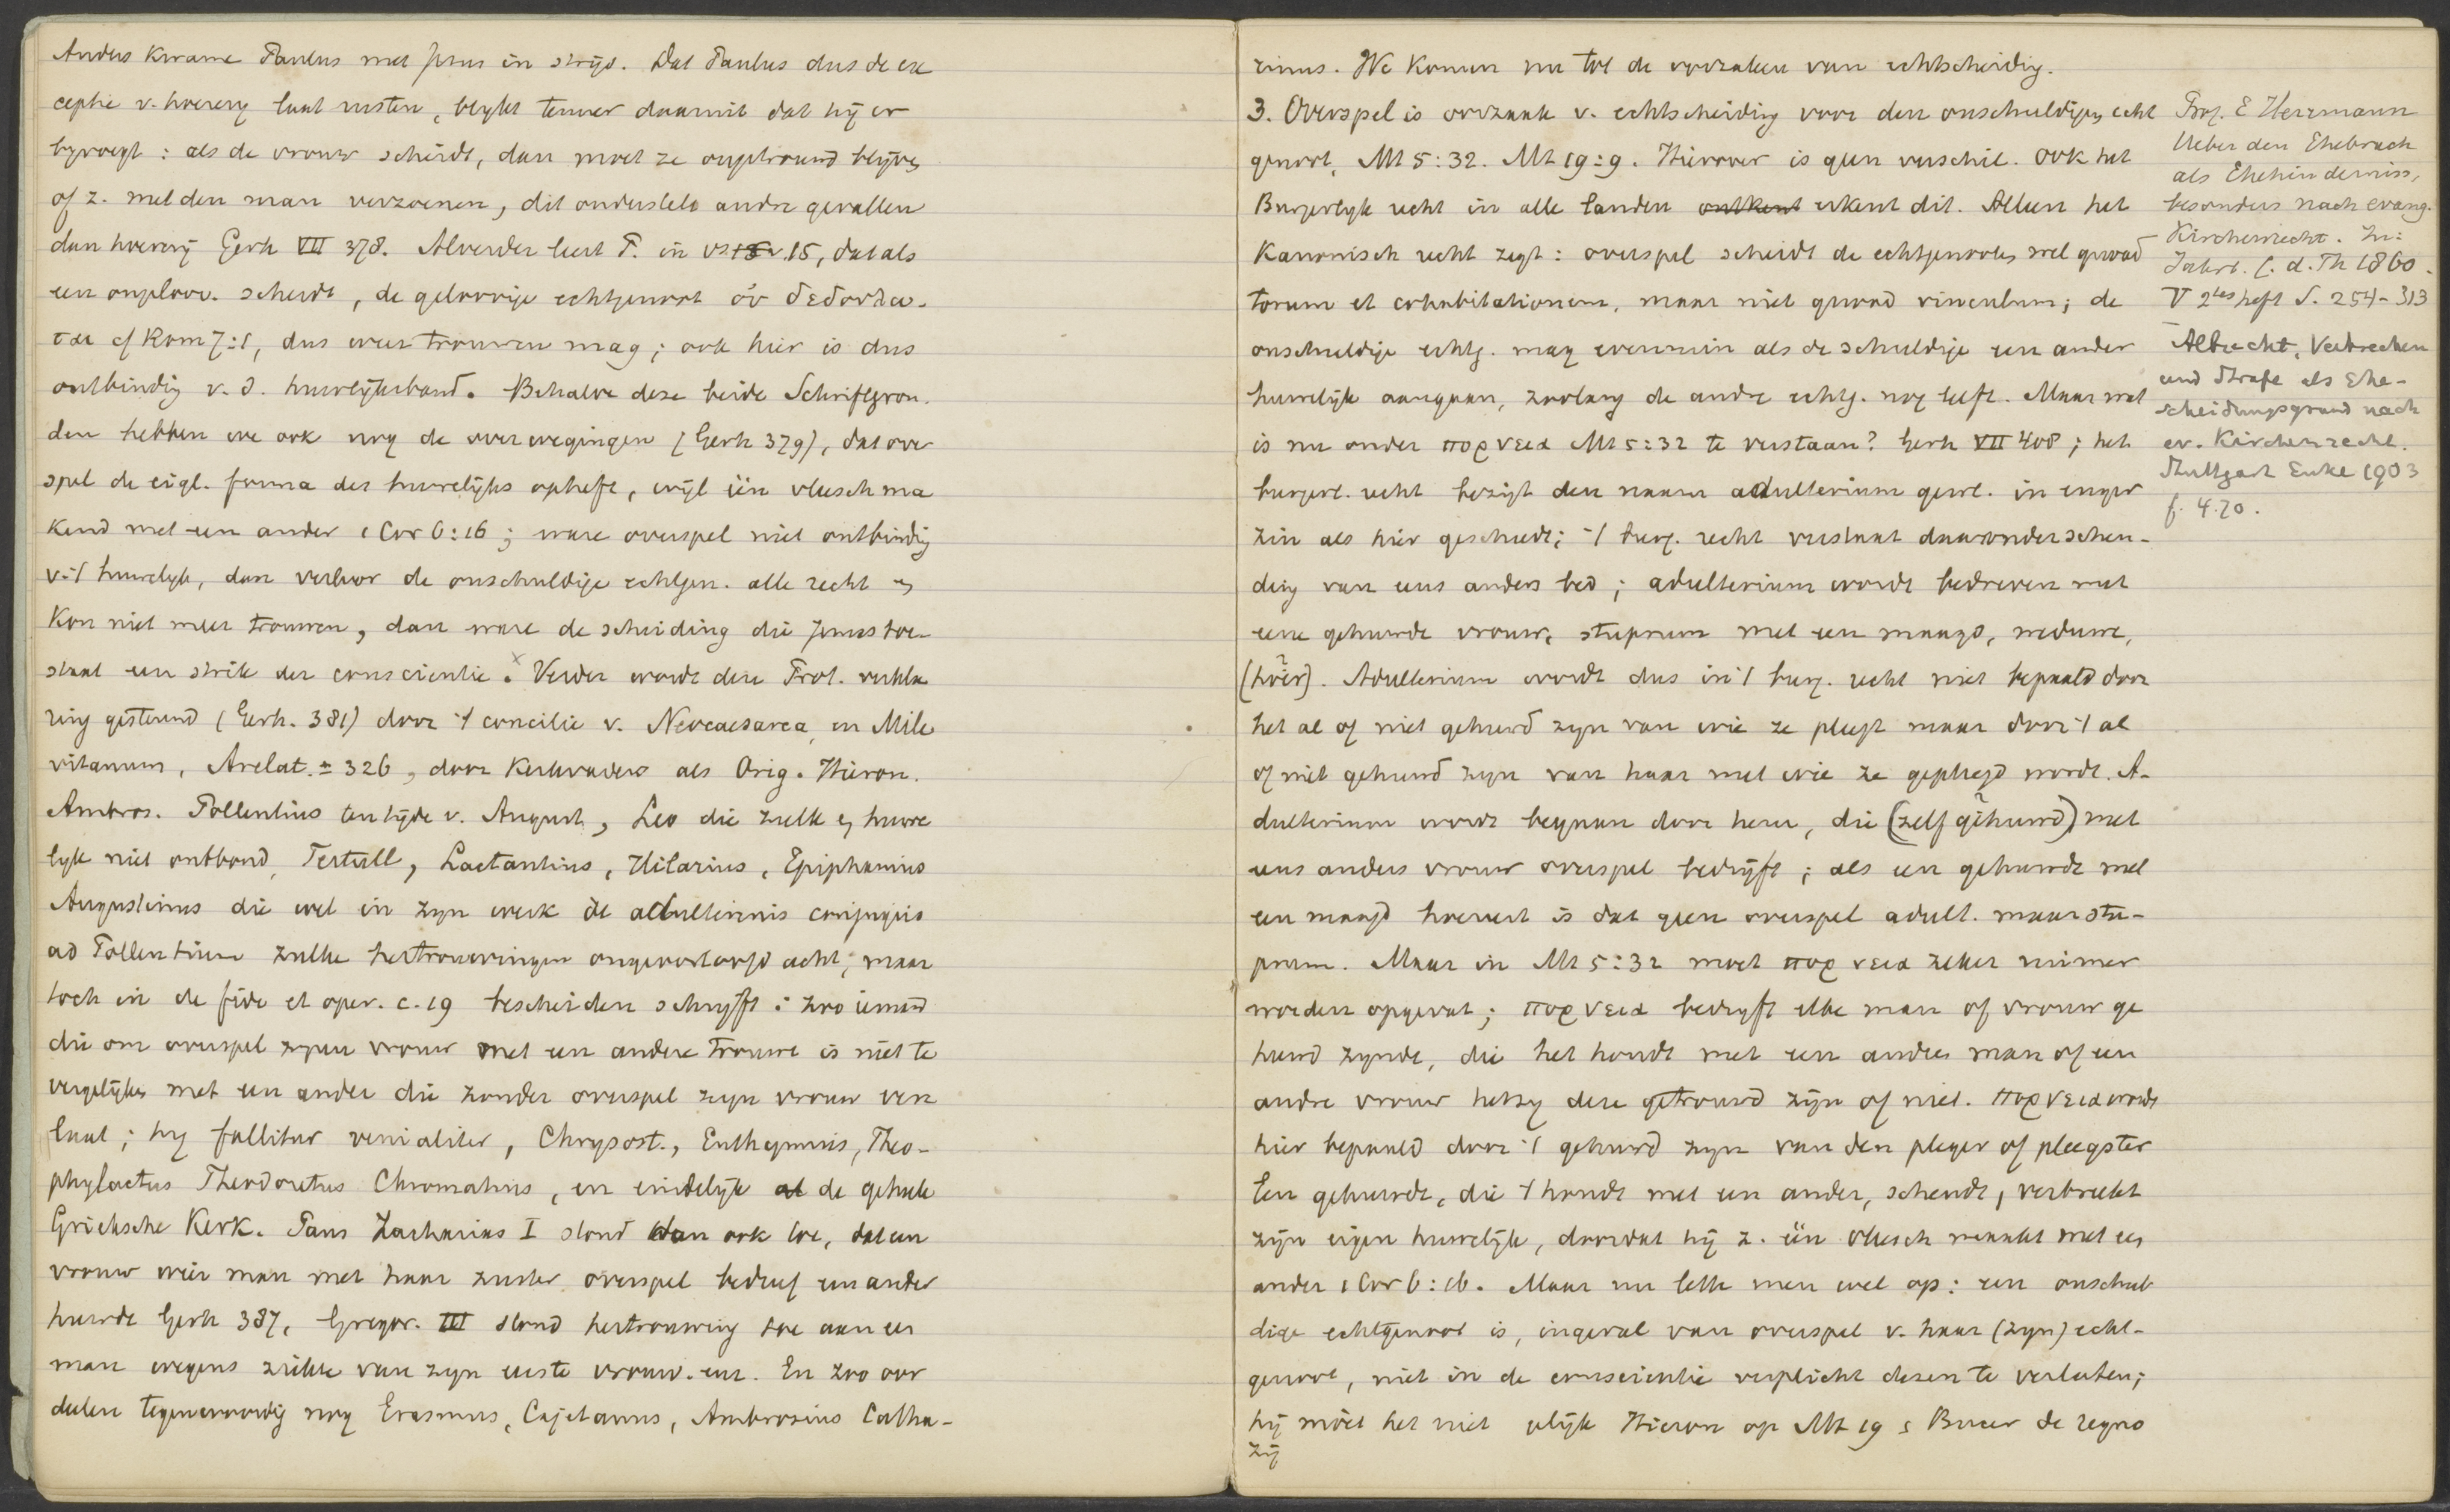 Anders kwame Paulus met Jezus in strijd. Dat Paulus dus de ex
ceptie v. hoererij laat rusten, blykt temeer daaruit dat hij er
byvoegt: als de vrouw scheidt, dan moet ze ongetrouwd blijven
of z. met den man verzoenen, dit onderstelt andre gevallen
dan hoererij Gerh VII 378. Alverder leert P. in vs 15, dat als
een ongeloov. scheidt, de geloovige echtgenoot οὐ δεδουλω-
ται cf Rom 7:1, dus weer trouwen mag; ook hier is dus
ontbinding v. d. huwelijksband. Behalve deze beide Schriftgron-
den hebben we ook nog de overwegingen (Gerh 379), dat over
spel de eigl. forma des huwelijks opheft, wijl één vleesch ma
kend met een ander 1 Cor 6:16; ware overspel niet ontbinding
v. 't huwelyk, dan verloor de onschuldige echtgen. alle recht en
kon niet meer trouwen, dan ware de scheiding die Jezus toe-
staat een strik der conscientie. Verder wordt deze Prot. verkla
ring gesteund (Gerh. 381) door 't concilie v. Neocaesarea, en Mile
vitanum, Arelat. ± 326, door Kerkvaders als Orig. Hieron.
Ambros. Pollentius ten tijde v. August, Leo die zulk een huwe
lyk niet ontbond, Tertull, Lactantius, Hilarius, Epiphanius
Augustinus die wel in zyn werk de adulterinis conjugiis
ad Pollentium zulke hertrouwingen ongeoorloofd acht, maar
toch in de fide et oper. c. 19 bescheiden schryft: zoo iemand
die om overspel zyner vrouw met een andere trouwt is niet te
vergelijken met een ander die zonder overspel zyn vrouw ver
laat; hy fallitur venialiter, Chrysost., Euthymius, Theo-
phylactus Theodoretus Chromatius, en eindelijk de geheele
Grieksche Kerk. Paus Zacharias I stond dan ook toe, dat een
vrouw wier man met haar zuster overspel bedreef een ander
huwde Gerh 387, Gregor. III stond hertrouwing toe aan een
man wegens ziekte van zyn eerste vrouw. enz. En zoo oor
deelen tegenwoordig nog Erasmus, Cajetanus, Ambrosius Catha-
rinus. We komen nu tot de oorzaken van echtscheidig.
3. Overspel is oorzaak v. echtscheiding voor den onschuldigen echt
genoot, Mt 5:32. Mt 19:9. Hierover is geen verschil. Ook het
Burgerlyk recht in alle landen ontkent erkent dit. Alleen het
Kanonisch recht zegt: overspel scheidt de echtgenooten wel quoad
torum et cohabitationem, maar niet quoad vinculum; de
onschuldige echtg. mag evenmin als de schuldige een ander
huwelijk aangaan, zoolang de andre echtg. nog leeft. Maar wat
is nu onder πορνεια Mt 5:32 te verstaan? Gerh VII 408; het
burgerl. recht bezigt den naam adulterium gewl. in enger
zin als hier geschiedt; 't burg. recht verstaat daaronder schen-
ding van eens anders bed; adulterium wordt bedreven met
eene gehuwde vrouw, stuprum met een maagd, weduwe,
(hoer). Adulterium wordt dus in 't burg. recht niet bepaald door
het al of niet gehuwd zyn van wie ze pleegt maar door 't al
of niet gehuwd zyn van haar met wie ze gepleegd wordt. A-
dulterium wordt begaan door hem, die (zelf gehuwd) met
eens anders vrouw overspel bedrijft; als een gehuwde met
een maagd hoereert is dat geen overspel adult. maar stu-
prum. Maar in Mt 5:32 moet πορνεια zeker ruimer
worden opgevat; πορνεια bedryft elke man of vrouw ge
huwd zynde, die het houdt met een andere man of een
andre vrouw hetzy deze getrouwd zijn of niet. πορνεια wordt
hier bepaald door 't gehuwd zyn van den pleger of pleegster
Een gehuwde, die 't houdt met een ander, schendt, verbreekt
zijn eigen huwelijk, doordat hij z. één vleesch maakt met een
ander 1 Cor 6:16. Maar nu lette men wel op: een onschul
dige echtgenoot is, ingeval van overspel v. haar (zyn) echt-
genoot, niet in de conscientie verplicht dezen te verlaten;
hij moet het niet gelijk Hieron op Mt 19 Bucer de regno
zij
Prof. E Herrmann
Ueber den Ehebruch
als Ehehinderniss,
besonders nach evang.
Kirchenrecht. In:
Jahrb. f. d. Th 1860.
V 2tes heft S. 254-313
Albrecht, Verbrechen
und Strafe als Ehe-
scheidungsgrund nach
ev. Kirchenrecht.
Stuttgart Enke 1903
f. 4.70.